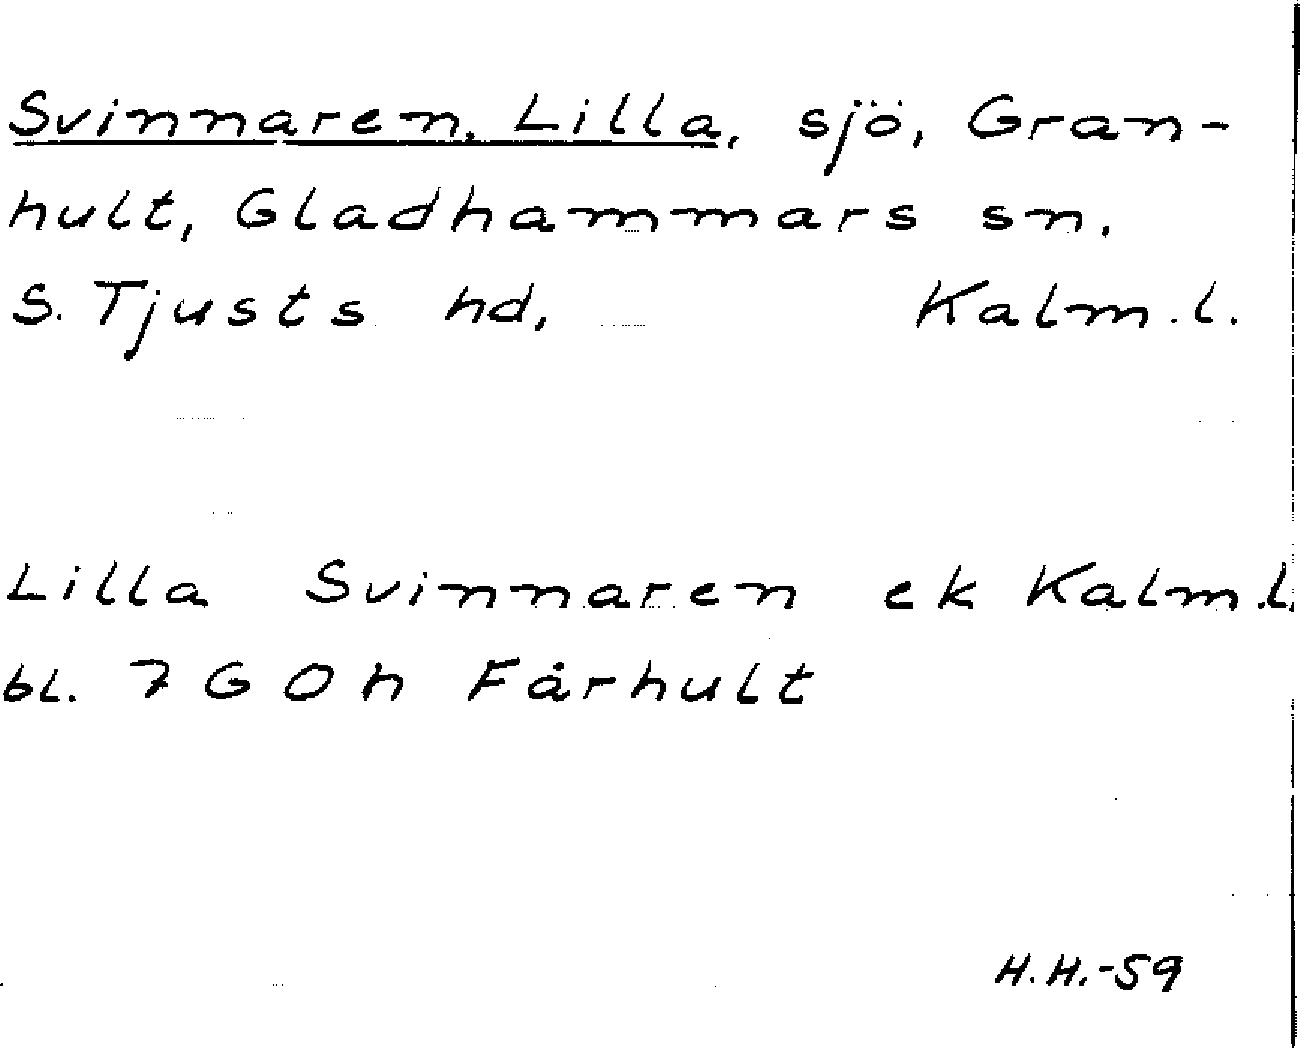 Svinnaren, Lilla, sjö, Gran-
hult, Gladhammars sn.
S. Tjusts hd, Kalm.l.
Lilla Svinnaren ek Kalm.l.
bl. 7 G O h Fårhult
H.H.-59